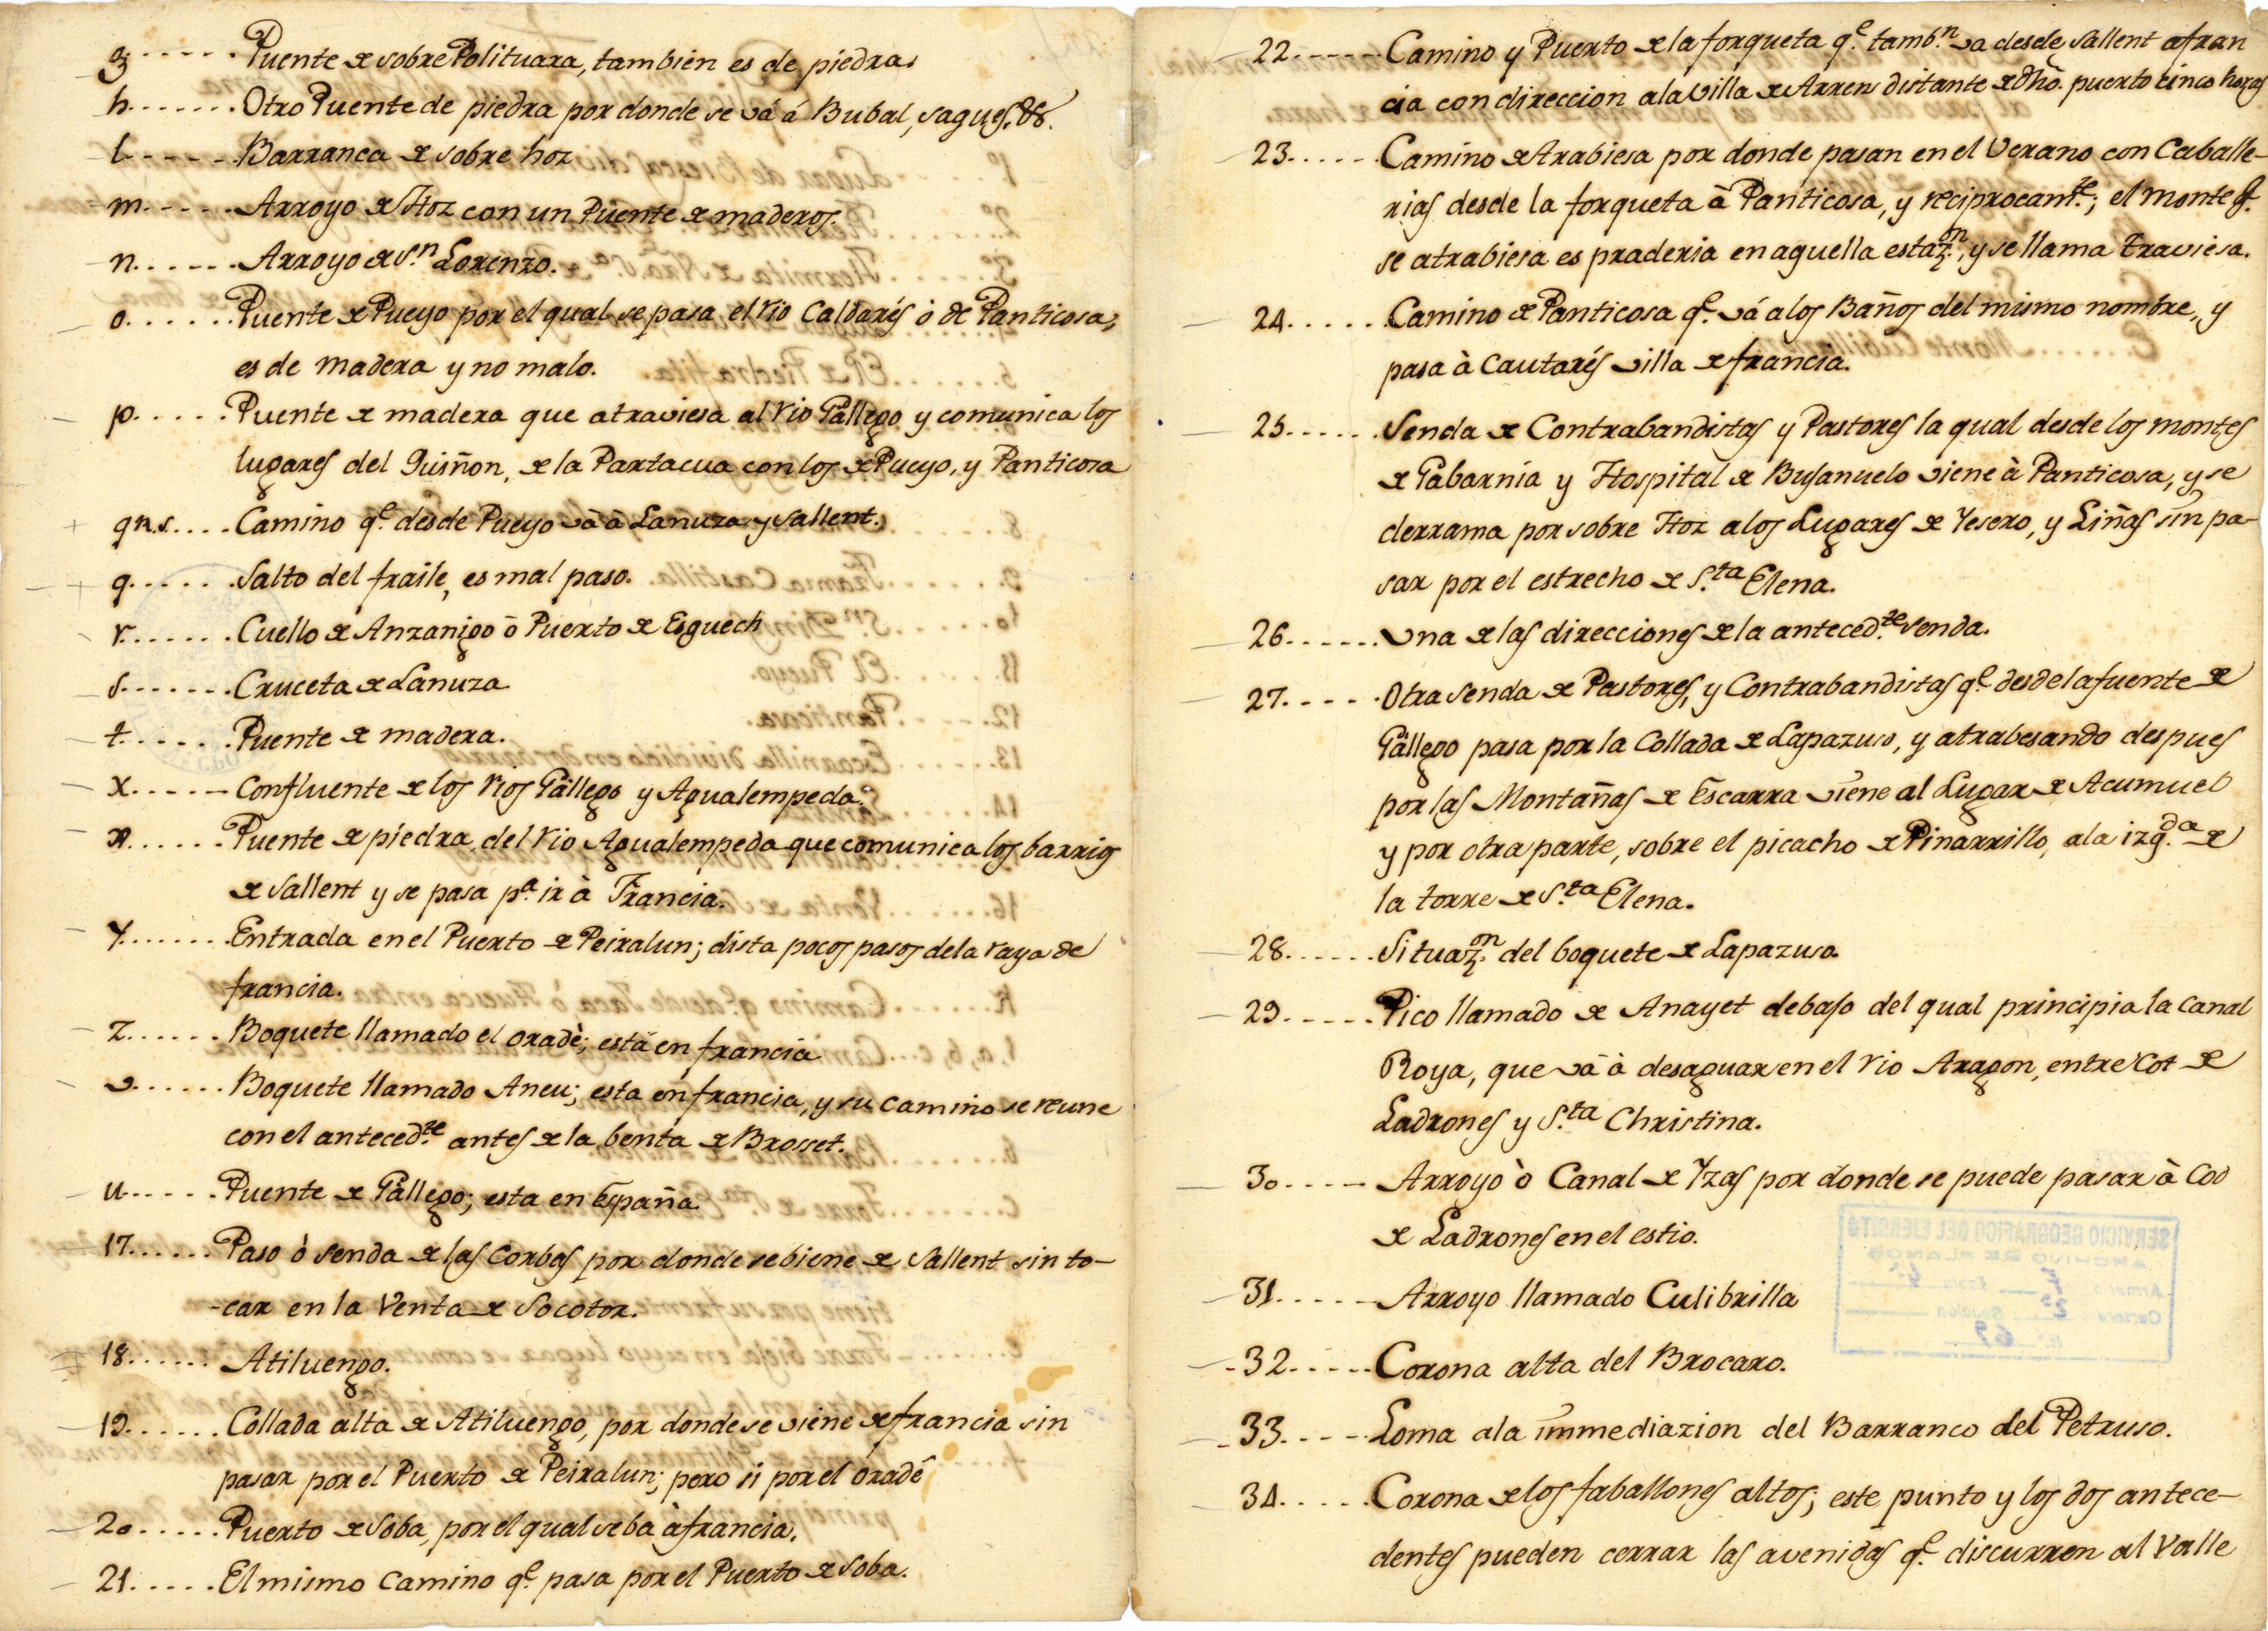 g...... Puente de sobre Polituara, tambien es de piedra.
h....... Otro Puente de piedra por donde se vá á Bubal, sagues, &c.
l...... Barranca de sobre hoz
m...... Arroyo de Hoz con un Puente de maderos.
n...... Arroyo de S.n Lorenzo.
o...... Puente de Pueyo por el qual se pasa el rio Caldarés ò de Panticosa;
es de madera y no malo.
p..... Puente de madera que atraviesa al rio Gallego y comunica los
lugares del Quiñon, de la Partacua con los de Pueyo, y Panticosa
qn.s.... Camino q.e desde Pueyo và à Lanuza y Sallent.
q...... Salto del fraile, es mal paso.
r...... Cuello de Anzanigo ò Puerto de Esguech
s....... Cruceta de Lanuza
t...... Puente de madera.
x..... Confluente de los rios Gállego y Agualempeda.
...... Puente de piedra del rio Agualempeda que comunica los barrios
de Sallent y se pasa p.a ir à Francia.
Y....... Entrada en el Puerto de Peiralun; dista pocos pasos de la raya de
francia.
Z...... Boquete llamado el oradè; está en francia
v...... Boquete llamado Aneu; esta en francia, y su camino se reune
con el anteced.te antes de la benta de Brosset.
u..... Puente de Gàllego; esta en España
17...... Paso ò senda de las Corbas por donde se biene de Sallent sin to-
-car en la Venta de Socotor.
18...... Atiluengo.
19...... Collada alta de Atiluengo, por donde se viene de francia sin
pasar por el Puerto de Peiralun; pero si por el oradê
20..... Puerto de Soba, por el qual se ba à francia.
21..... El mismo Camino q.e pasa por el Puerto de Soba.
22...... Camino y Puerto de la forqueta q.e tamb.n va desde Sallent a fran
cia con direccion a la villa de Arren distante de dho. puerto cinco horas
23..... Camino de Arabiesa por donde pasan en el Verano con Caballe-
rias desde la forqueta à Panticosa, y reciprocam.te; el monte q.e
se atrabiesa es praderia en aquella estaz.on, y se llama traviesa.
24..... Camino de Panticosa q.e vá a los Baños del mismo nombre, y
pasa à Cautarés villa de francia.
25..... Senda de Contrabandistas y Pastores la qual desde los montes
de Gabarnia y Hospital de Bujanuelo viene à Panticosa, y se
derrama por sobre Hoz a los Lugares de Yesero, y Liñas sin pa-
sar por el estrecho de S.ta Elena.
26...... Una de las direcciones de la anteced.te senda.
27..... Otra senda de Pastores, y Contrabandistas q.e desde la fuente de
Gállego pasa por la Collada de Lapazuso, y atrabesando despues
por las Montañas de Escarra viene al Lugar de Acumuel
y por otra parte, sobre el picacho de Pinarrillo, a la izq.da de
la torre de S.ta Elena.
28...... Situaz.on del boquete de Lapazuso.
29..... Pico llamado de Anayet debajo del qual principia la canal
Roya, que và à desaguar en el rio Aragon, entre Cot de
Ladrones y S.ta Christina.
30..... Arroyo ò Canal de Yzas por donde se puede pasar à Cod
de Ladrones en el estio.
31...... Arroyo llamado Culibrilla
32..... Corona alta del Brocaro.
33..... Loma a la immediazion del Barranco del Petruso.
34..... Corona de los faballones altos; este punto y los dos antece-
dentes pueden cerrar las avenidas q.e discurren al Valle